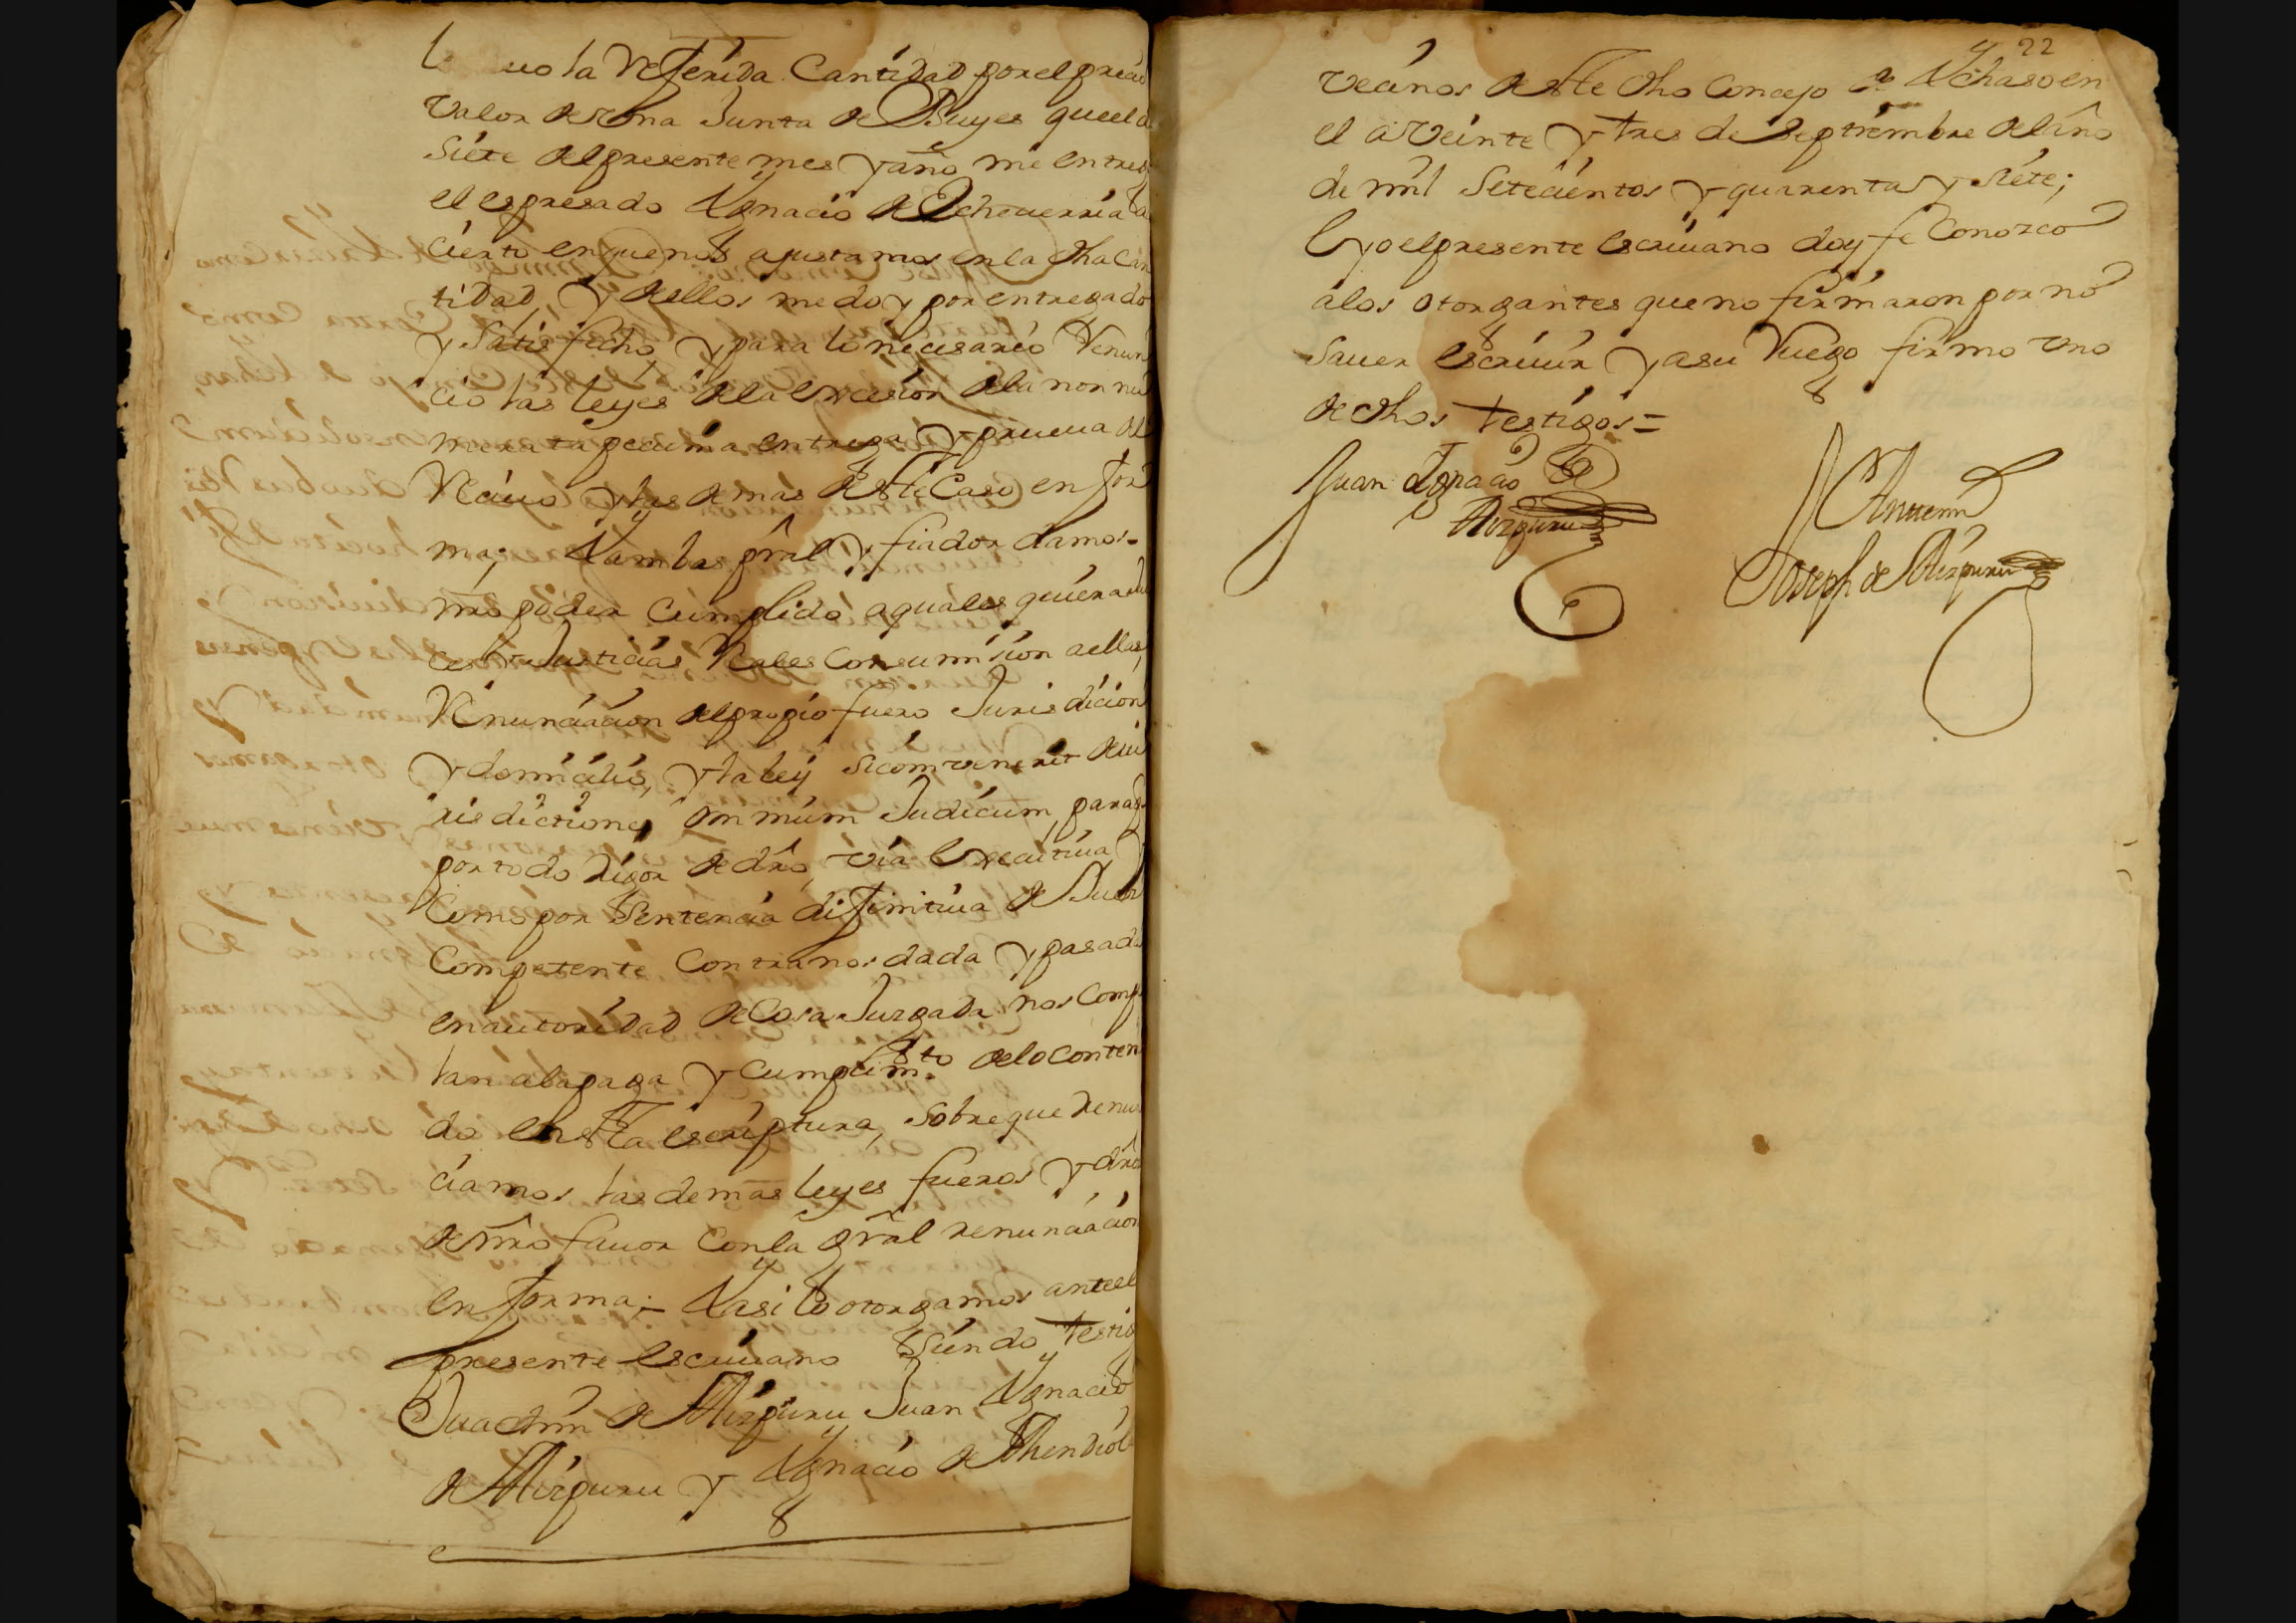 la Referida Cantidad por el precio
valor de una Junta de Buyes que el d
siete del presente mes y año me entreg
el espresado Ygnacio de Echeuerria
cierto en que nos ajustamos en la dha Can
tidad, y de ellos me doy por entregado
y Satisfecho, y para lo necesario Renun
cio las leyes de la excesion de la non nu
merata pecunia entrega y prueua del
Reciuo y las demas de este Caso en for
ma; Y ambos prãl y fiador damos
nrõ poder Cumplido a quales quiera
Justicias Reales Con sumision a ellas,
Renunciacion del propio fuero Jurisdicion
y domicilio, y la ley si comvenerit de iu
risdictione omnium Judicum, para q
por todo rigor de drõ, via executiua y
Como por Sentencia difinitiua de Juez
Competente Contra nos dada y pasada
en autoridad de Cosa Juzgada nos Comp
lan a la paga y Cumplim.to de lo Conteni
do en esta escriptura, sobre que Renun
ciamos las demas leyes fueros y drõs
de nrõ fauor Con la gral renunciacion
en forma;– Y asi lo otorgamos ante el
presente escriuano Siendo testig
Juachin de Aizpuru Juan Ygnacio
de Aizpuru y Ygnacio de Mendiol
22
vecinos de este dho Concejo de Ychaso en
el a veinte y tres de Septiembre del año
de mil Setecientos y quarenta y siete;
E yo el presente escriuano doy fe Conozco
a los otorgantes que no firmaron por no
sauer escriuir y a su Ruego firmo uno
de dhos testigos =
Juan Ignacio de
Aizpuru
Ante mi
Joseph de Aizpuru